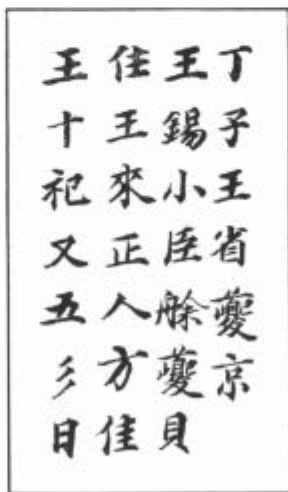 丁子王省夔京
王錫小臣艅夔貝
隹王來正人方隹
王十祀又五彡日